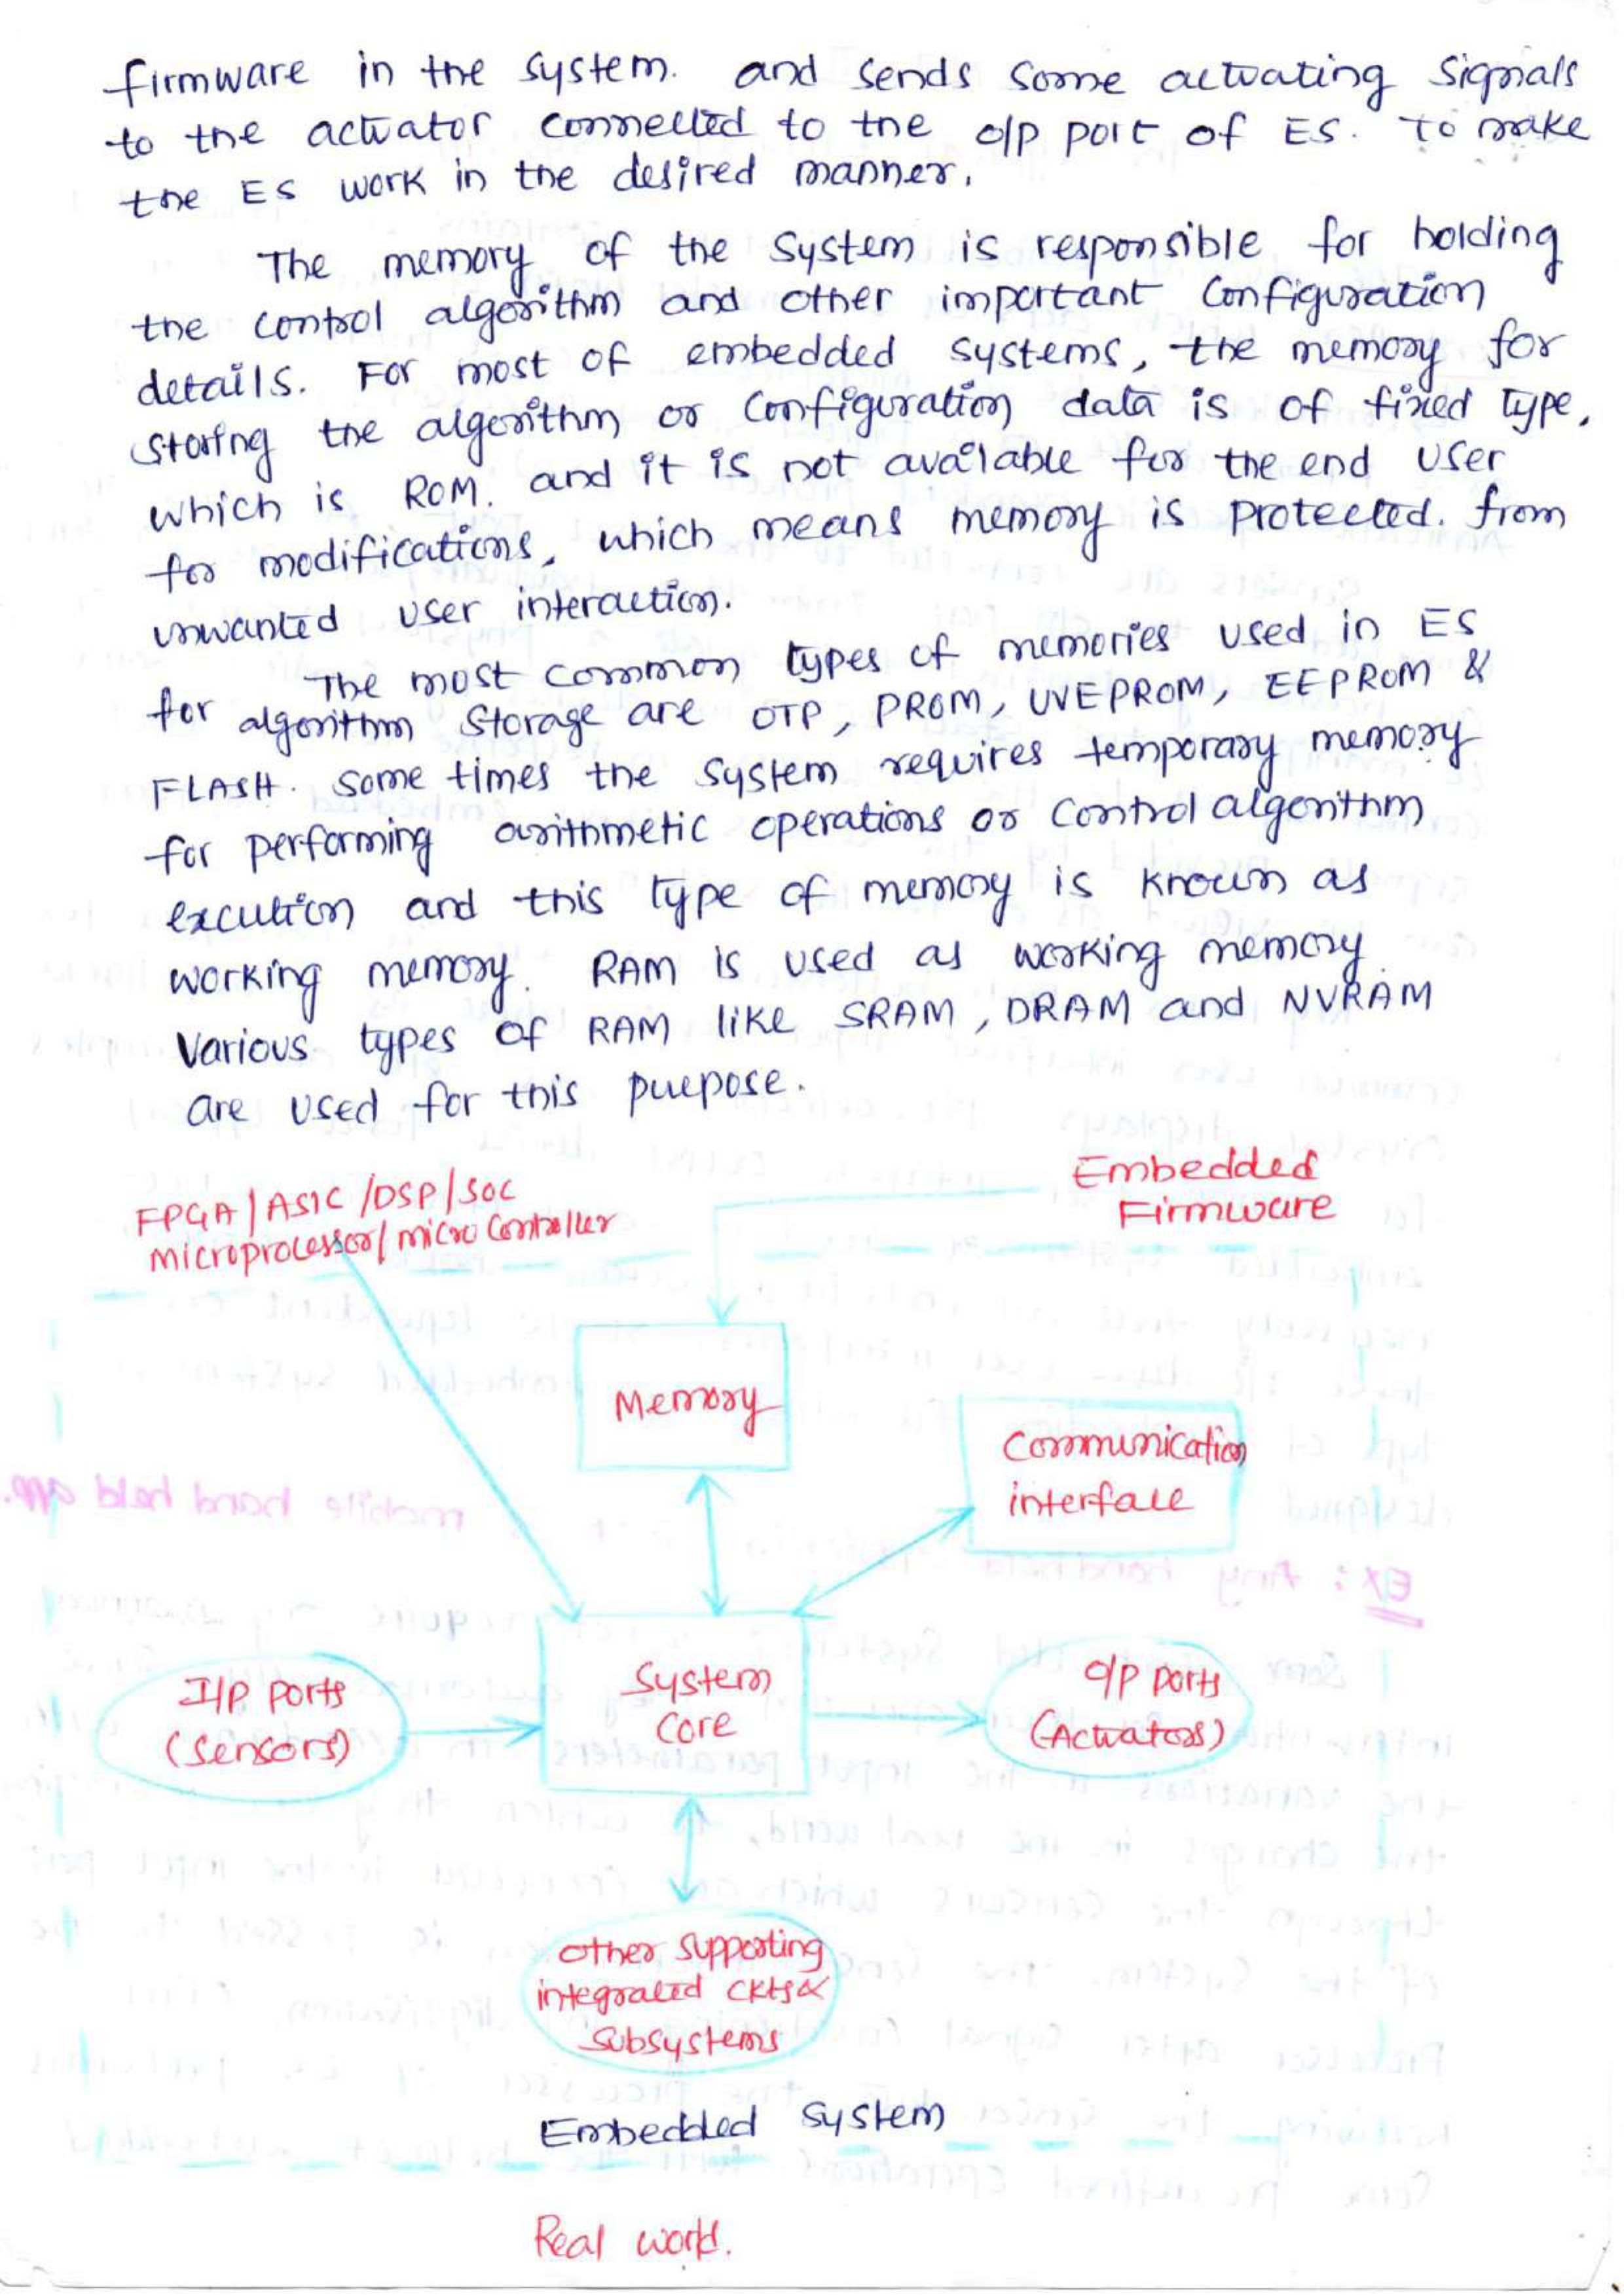 firmware in the system. and sends some actuating signals
to the actuator connected to the o/p port of ES. to make
the ES work in the desired manner.
The memory of the system is responsible for holding
the control algorithm and other important configuration
details. For most of embedded systems, the memory for
storing the algorithm or configuration data is of fixed type,
which is ROM. and it is not available for the end user
for modifications, which means memory is protected. from
unwanted user interaction.
The most common types of memories used in ES
for algorithm storage are OTP, PROM, UVEPROM, EEPROM &
FLASH. Some times the system requires temporary memory
for performing arithmetic operations or control algorithm
excution and this type of memory is known as
working memory. RAM is used as working memory.
Various types of RAM like SRAM, DRAM and NVRAM
are used for this purpose.
Embedded
Firmware
FPGA/ASIC/DSP/SOC
microprocessor/micro controller
Memory
Communication
interface
I/P ports
(sensors)
System
core
O/P ports
(Actuators)
other supporting
integrated ckts &
subsystems
Embedded system
Real world.